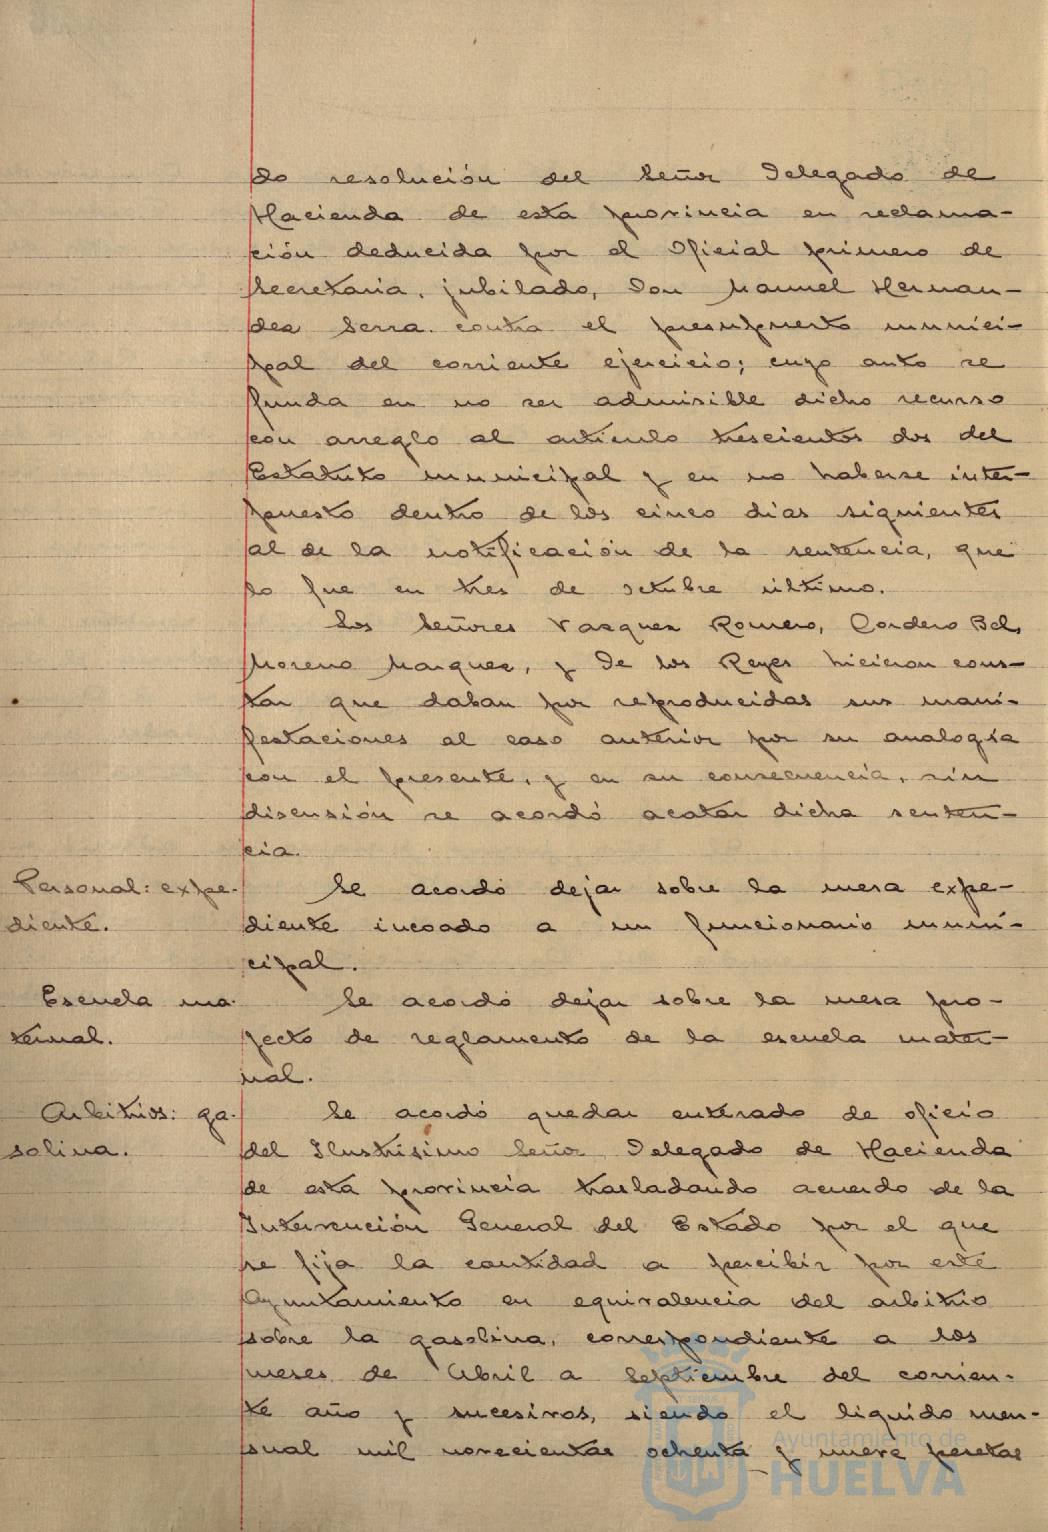 do resolución del Señor Delegado de
Hacienda de esta provincia en reclama-
ción deducida por el Oficial primero de
Secretaria, jubilado, Don Manuel Hernan-
dez Serra contra el presupuesto munici-
pal del corriente ejercicio; cuyo auto se
funda en no ser admisible dicho recurso
con arreglo al articulo trescientos dos del
Estatuto municipal y en no haberse inter-
puesto dentro de los cinco dias siguientes
al de la notificación de la sentencia, que
lo fue en tres de octubre último.
Los Señores Vazquez Romero, Cordero Bel,
Moreno Marquez, y De los Reyes hicieron cons-
tar que daban por reproducidas sus mani-
festaciones al caso anterior por su analogía
con el presente, y en su consecuencia, sin
discusión se acordó acatar dicha senten-
cia.
Personal: expe-
diente.
Se acordó dejar sobre la mesa expe-
diente incoado a un funcionario muni-
cipal.
Escuela ma-
ternal.
Se acordó dejar sobre la mesa pro-
yecto de reglamento de la escuela mater-
nal.
Arbitrios: ga-
solina.
Se acordó quedar enterado de oficio
del Ilustrisimo Señor Delegado de Hacienda
de esta provincia trasladando acuerdo de la
Intervención General del Estado por el que
se fija la cantidad a percibir por este
Ayuntamiento en equivalencia del arbitrio
sobre la gasolina, correspondiente a los
meses de Abril a Septiembre del corrien-
te año y sucesivos, siendo el liquido men-
sual mil novecientas ochenta y nueve pesetas
Ayuntamiento de
HUELVA